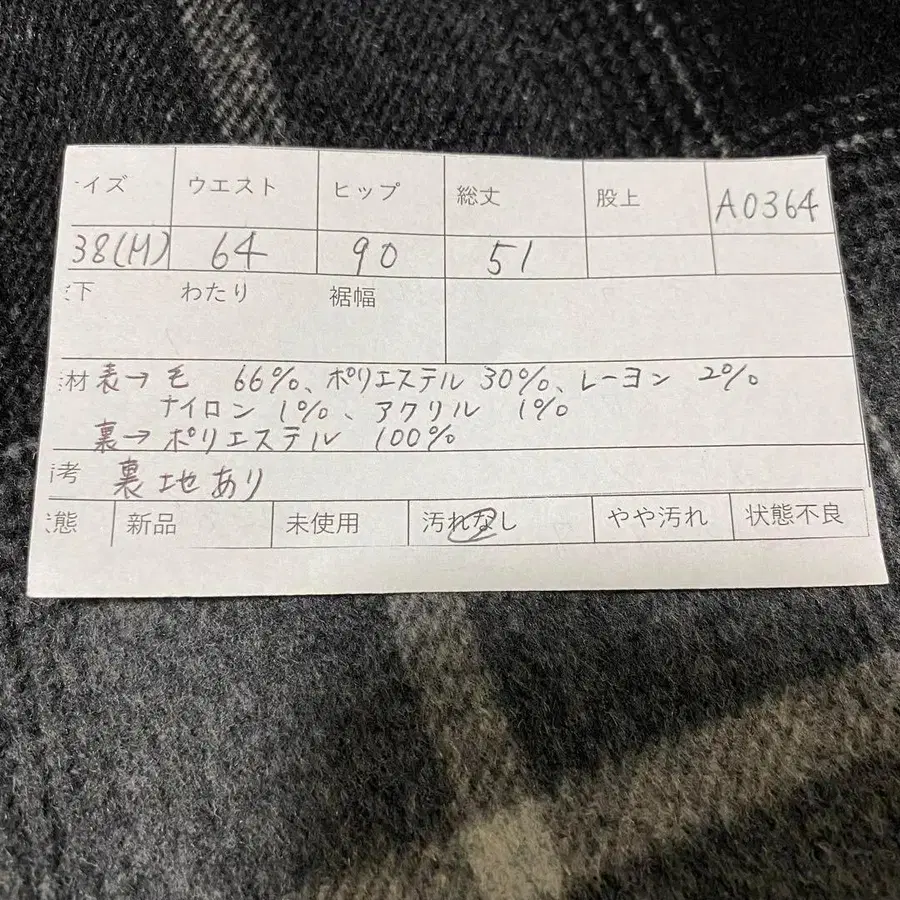 イズ ウエスト ヒップ 総丈 股上 A0364
38(M) 64 90 51
下 わたり 裾幅
材 表→ 毛 66%、ポリエステル 30%、レーヨン 2%
ナイロン 1%、アクリル 1%
裏→ ポリエステル 100%
考 裏地あり
態 新品 未使用 汚れなし やや汚れ 状態不良